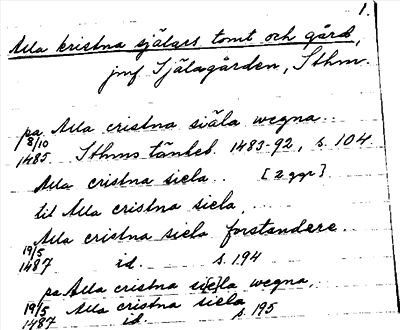 1.
Alla kristna själars tomt och gård,
jmf Själagården, Sthm.
pa Alla cristna siäla wegna..
8/10
1485 Sthms tänkeb. 1483-92, s. 104
Alla cristna siela.. [2 ggr].
til Alla cristna siela, ...
Alla cristna siela forstandere..
19/5
1487 id. s. 194
pa Alla cristna si[e]la wegna,
19/5 Alla cristna siela
1487 id. s. 195